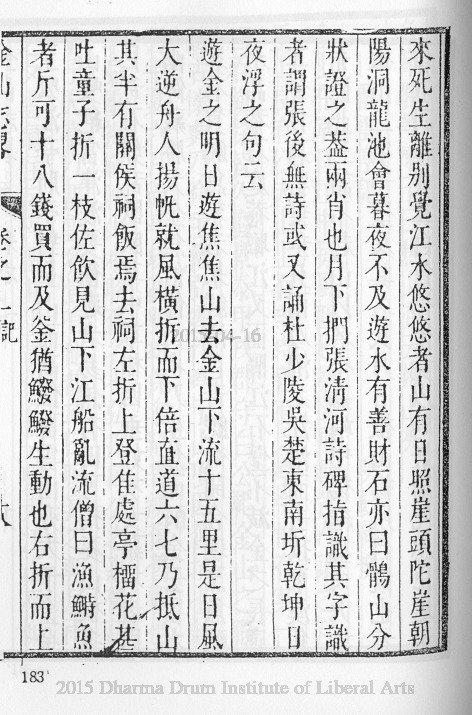 來死生離别覺江水悠悠者山有日照崖頭陀崖朝
陽洞龍池會暮夜不及遊水有善財石亦曰鶻山分
狀證之葢兩肖也月下捫張淸河詩碑指識其字識
者謂張後無詩或又誦杜少陵吳楚東南坼乾坤日
夜浮之句云
遊金之明日遊焦焦山去金山下流十五里是日風
大逆舟人揚帆就風橫折而下倍直道六七乃抵山
其半有關侯祠飯焉去祠左折上登佳處亭檑花甚
吐童子折一枝佐飲見山下江船亂流僧曰漁鰣魚
者斤可十八錢買而及釜猶鱍鱍生動也右折而上
金山志畧 卷之一記
183
2015-04-16
2015 Dharma Drum Institute of Liberal Arts